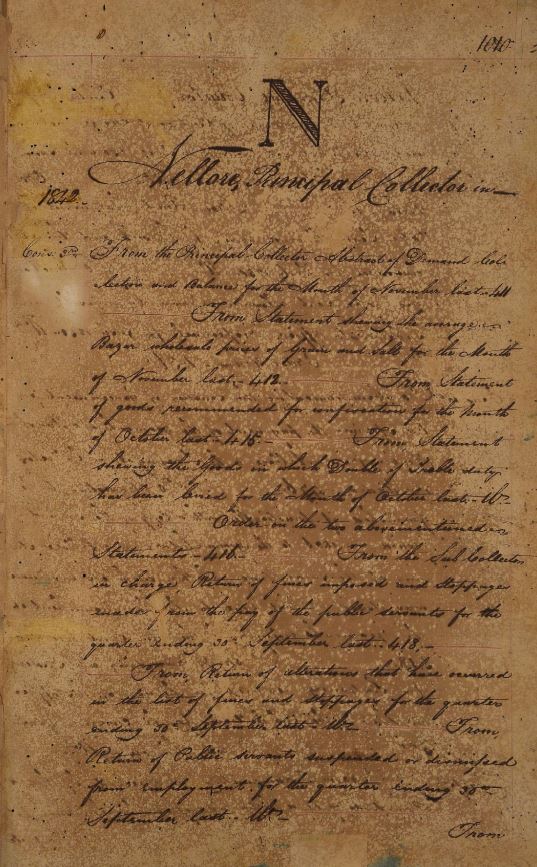 1010
N
Nellore, Principal Collector in
1842.
Cons. 3rd From the Principal Collector Abstract of Demand Col-
lection and Balance for the Month of November last - 411
From Statement shewing the average
Bazar wholesale prices of Grain and Salt for the Month
of November last - 412. From Statement
of goods recommended for confiscation for the Month
of October last - 415 - From Statement
shewing the Goods in which Double of Treble duty
has been levied for the Month of October last -
Order in the two abovementioned
Statements - 416 - From the Sub Collector
in charge Return of fines imposed and Stoppages
made from the pay of the public servants for the
quarter ending 30th September last - 418, -
From, Return of alterations that have occurred
in the list of fines and stoppages for the quarter
ending 30th September last - From,
Return of Public servants suspended or dismissed
from employment for the quarter ending 30th
September last -
From